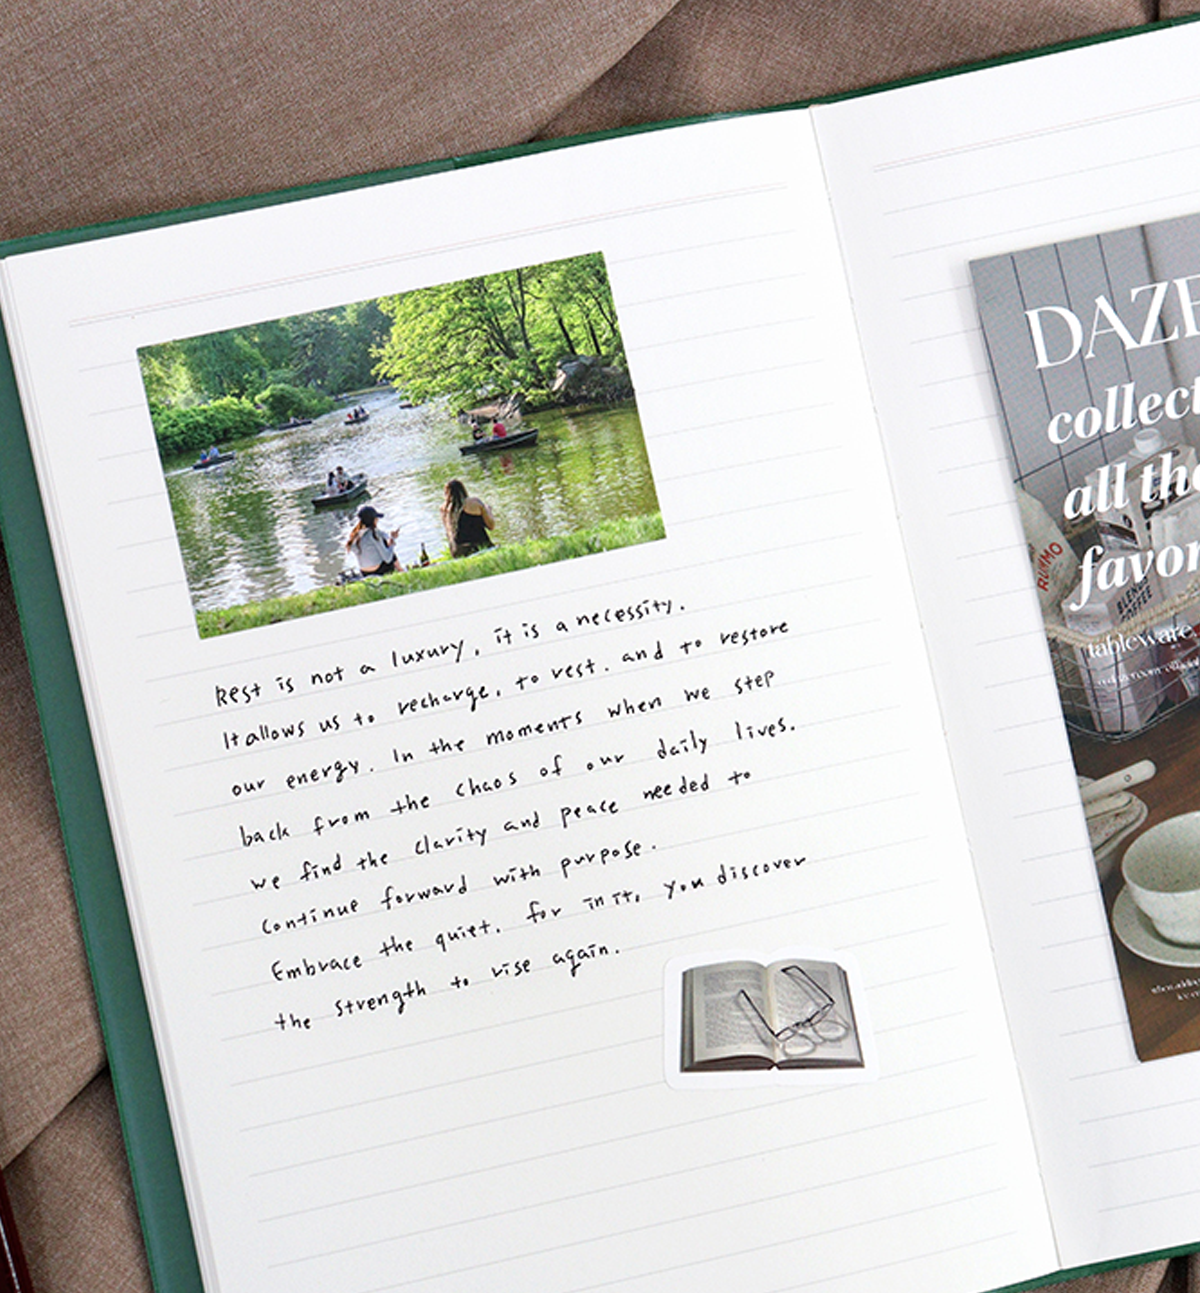 Rest is not a luxury, it is a necessity.
It allows us to recharge, to rest. and to restore
our energy. In the moments when we step
back from the chaos of our daily lives.
we find the clarity and peace needed to
continue forward with purpose.
Embrace the quiet. for in it, you discover
the strength to rise again.
DAZE
collect
all the
favor
RUMMO
BLEND
COFFEE
tableware